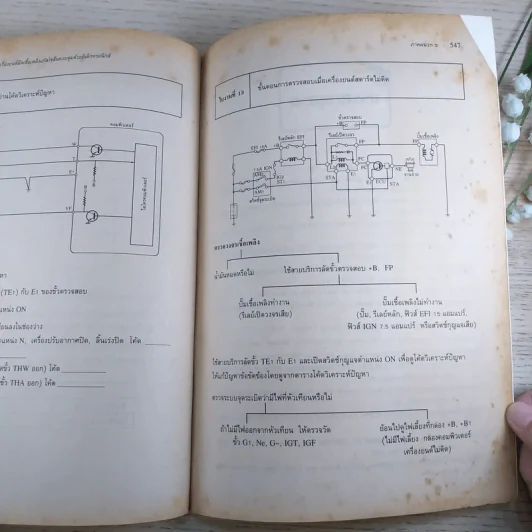 านโค้ดวิเคราะห์ปัญหา
คอมพิวเตอร์
W
VF
(TE1) กับ E1 ของขั้วตรวจสอบ
แหน่ง ON
แหน่ง N, เครื่องปรับอากาศปิด, ลิ้นเร่งปิด โค้ด
ขั้ว THW ออก) โค้ด
ขั้ว THA ออก) โค้ด
ภาคผนวก ธ 547
ใบงานที่ 13
ขั้นตอนการตรวจสอบเมื่อเครื่องยนต์สตาร์ตไม่ติด
ขั้วตรวจสอบ
+B FP
EFI 15A รีเลย์หลัก EFI
รีเลย์เปิดวงจร
ปั๊มเชื้อเพลิง
7.5A IGN
AM2
IG2
ST1
AM1
สวิตช์จุดระเบิด
+B
FP
FC
E1
STA
STA
E1 ECU
NE
จานจ่าย
ตรวจวงจรเชื้อเพลิง
น้ำมันหมดหรือไม่
ใช้สายบริการลัดขั้วตรวจสอบ +B, FP
ปั๊มเชื้อเพลิงทำงาน
(รีเลย์เปิดวงจรเสีย)
ปั๊มเชื้อเพลิงไม่ทำงาน
(ปั๊ม, รีเลย์หลัก, ฟิวส์ EFI 15 แอมแปร์,
ฟิวส์ IGN 7.5 แอมแปร์ หรือสวิตช์กุญแจเสีย)
ใช้สายบริการลัดขั้ว TE1 กับ E1 และเปิดสวิตช์กุญแจตำแหน่ง ON เพื่อดูโค้ดวิเคราะห์ปัญหา
ให้แก้ปัญหาข้อขัดข้องโดยดูจากตารางโค้ดวิเคราะห์ปัญหา
ตรวจระบบจุดระเบิดว่ามีไฟที่หัวเทียนหรือไม่
ถ้าไม่มีไฟออกจากหัวเทียน ให้ตรวจวัด
ขั้ว G1, Ne, G-, IGT, IGF
ย้อนไปดูไฟเลี้ยงที่กล่อง +B, +B1
(ไม่มีไฟเลี้ยง กล่องคอมพิวเตอร์
เครื่องยนต์ไม่ติด)